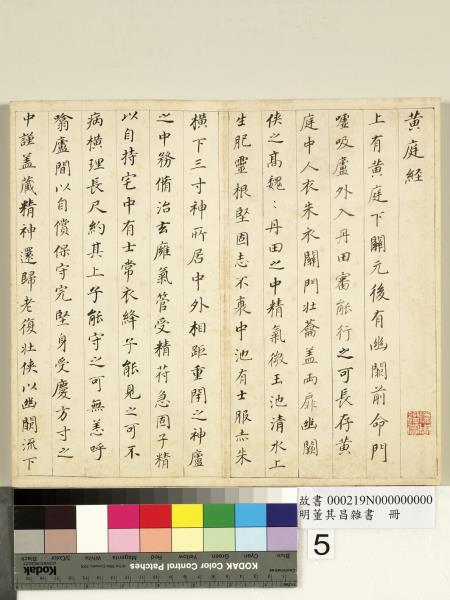 黃庭經
上有黃庭下關元後有幽闕前命門
噓吸廬外入丹田審能行之可長存黃
庭中人衣朱衣關門壯籥蓋兩扉幽闕
俠之高魏〻丹田之中精氣微玉池清水上
生肥靈根堅固志不衰中池有士服赤朱
橫下三寸神所居中外相距重閉之神廬
之中務脩治玄癰氣管受精苻急固子精
以自持宅中有士常衣絳子能見之可不
病橫理長尺約其上子能守之可無恙呼
翕廬間以自償保守完堅身受慶方寸之
中謹蓋藏精神還歸老復壯俠以幽闕流下
故書 000219N000000000
明董其昌雜書 冊
5
KODAK Color Control Patches
Blue
Cyan
Green
Yellow
Red
Magenta
White
3/Color
Black
Kodak